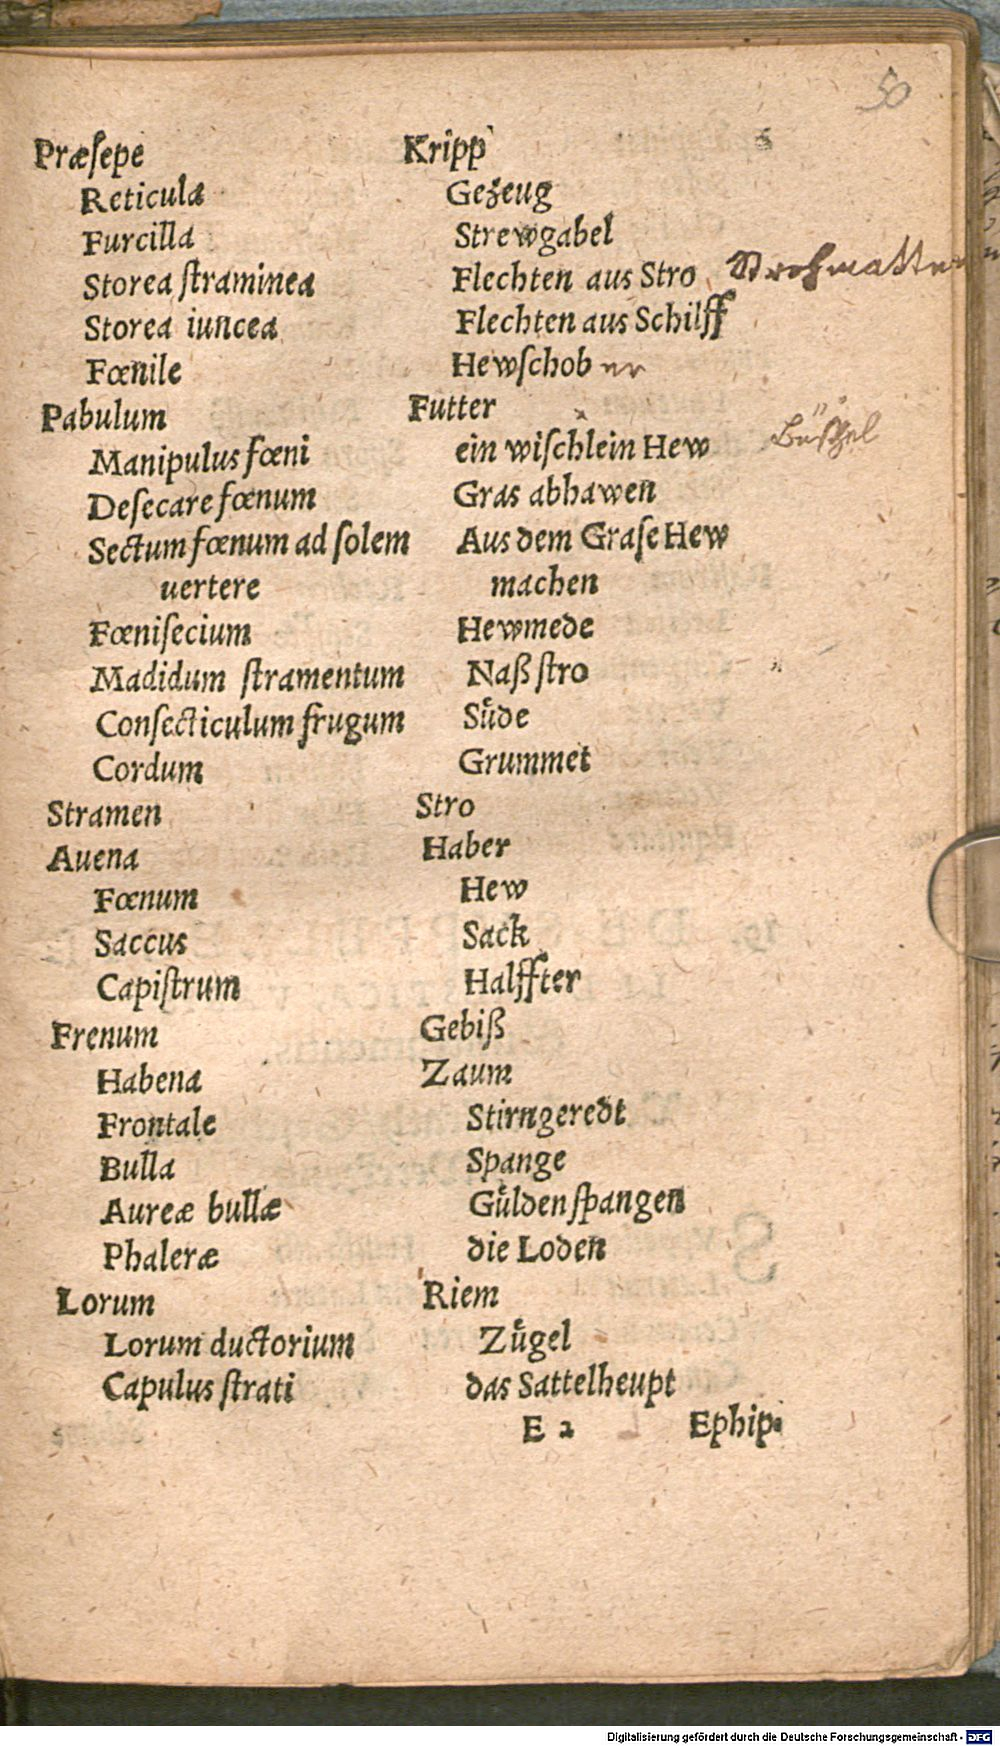 50
Præſepe Kripp
Reticula Geʒeug
Furcilla Strewgabel
Storea ſtraminea Flechten aus Stro Strohmatten
Storea iuncea Flechten aus Schilff
Fœnile Hewſchob er
Pabulum Futter
Manipulus fœni ein wiſchlein Hew Büschel
Deſecare fœnum Gras abhawen
Sectum fœnum ad ſolem Aus dem Graſe Hew
uertere machen
Fœniſecium Hewmede
Madidum ſtramentum Naß ſtro
Conſecticulum frugum Suͤde
Cordum Grummet
Stramen Stro
Auena Haber
Fœnum Hew
Saccus Sack
Capiſtrum Halffter
Frenum Gebiß
Habena Zaum
Frontale Stirngeredt
Bulla Spange
Aureæ bullæ Guͤlden ſpangen
Phaleræ die Loden
Lorum Riem
Lorum ductorium Zuͤgel
Capulus ſtrati das Sattelheupt
E 2 Ephip-
Digitalisierung gefördert durch die Deutsche Forschungsgemeinschaft - DFG